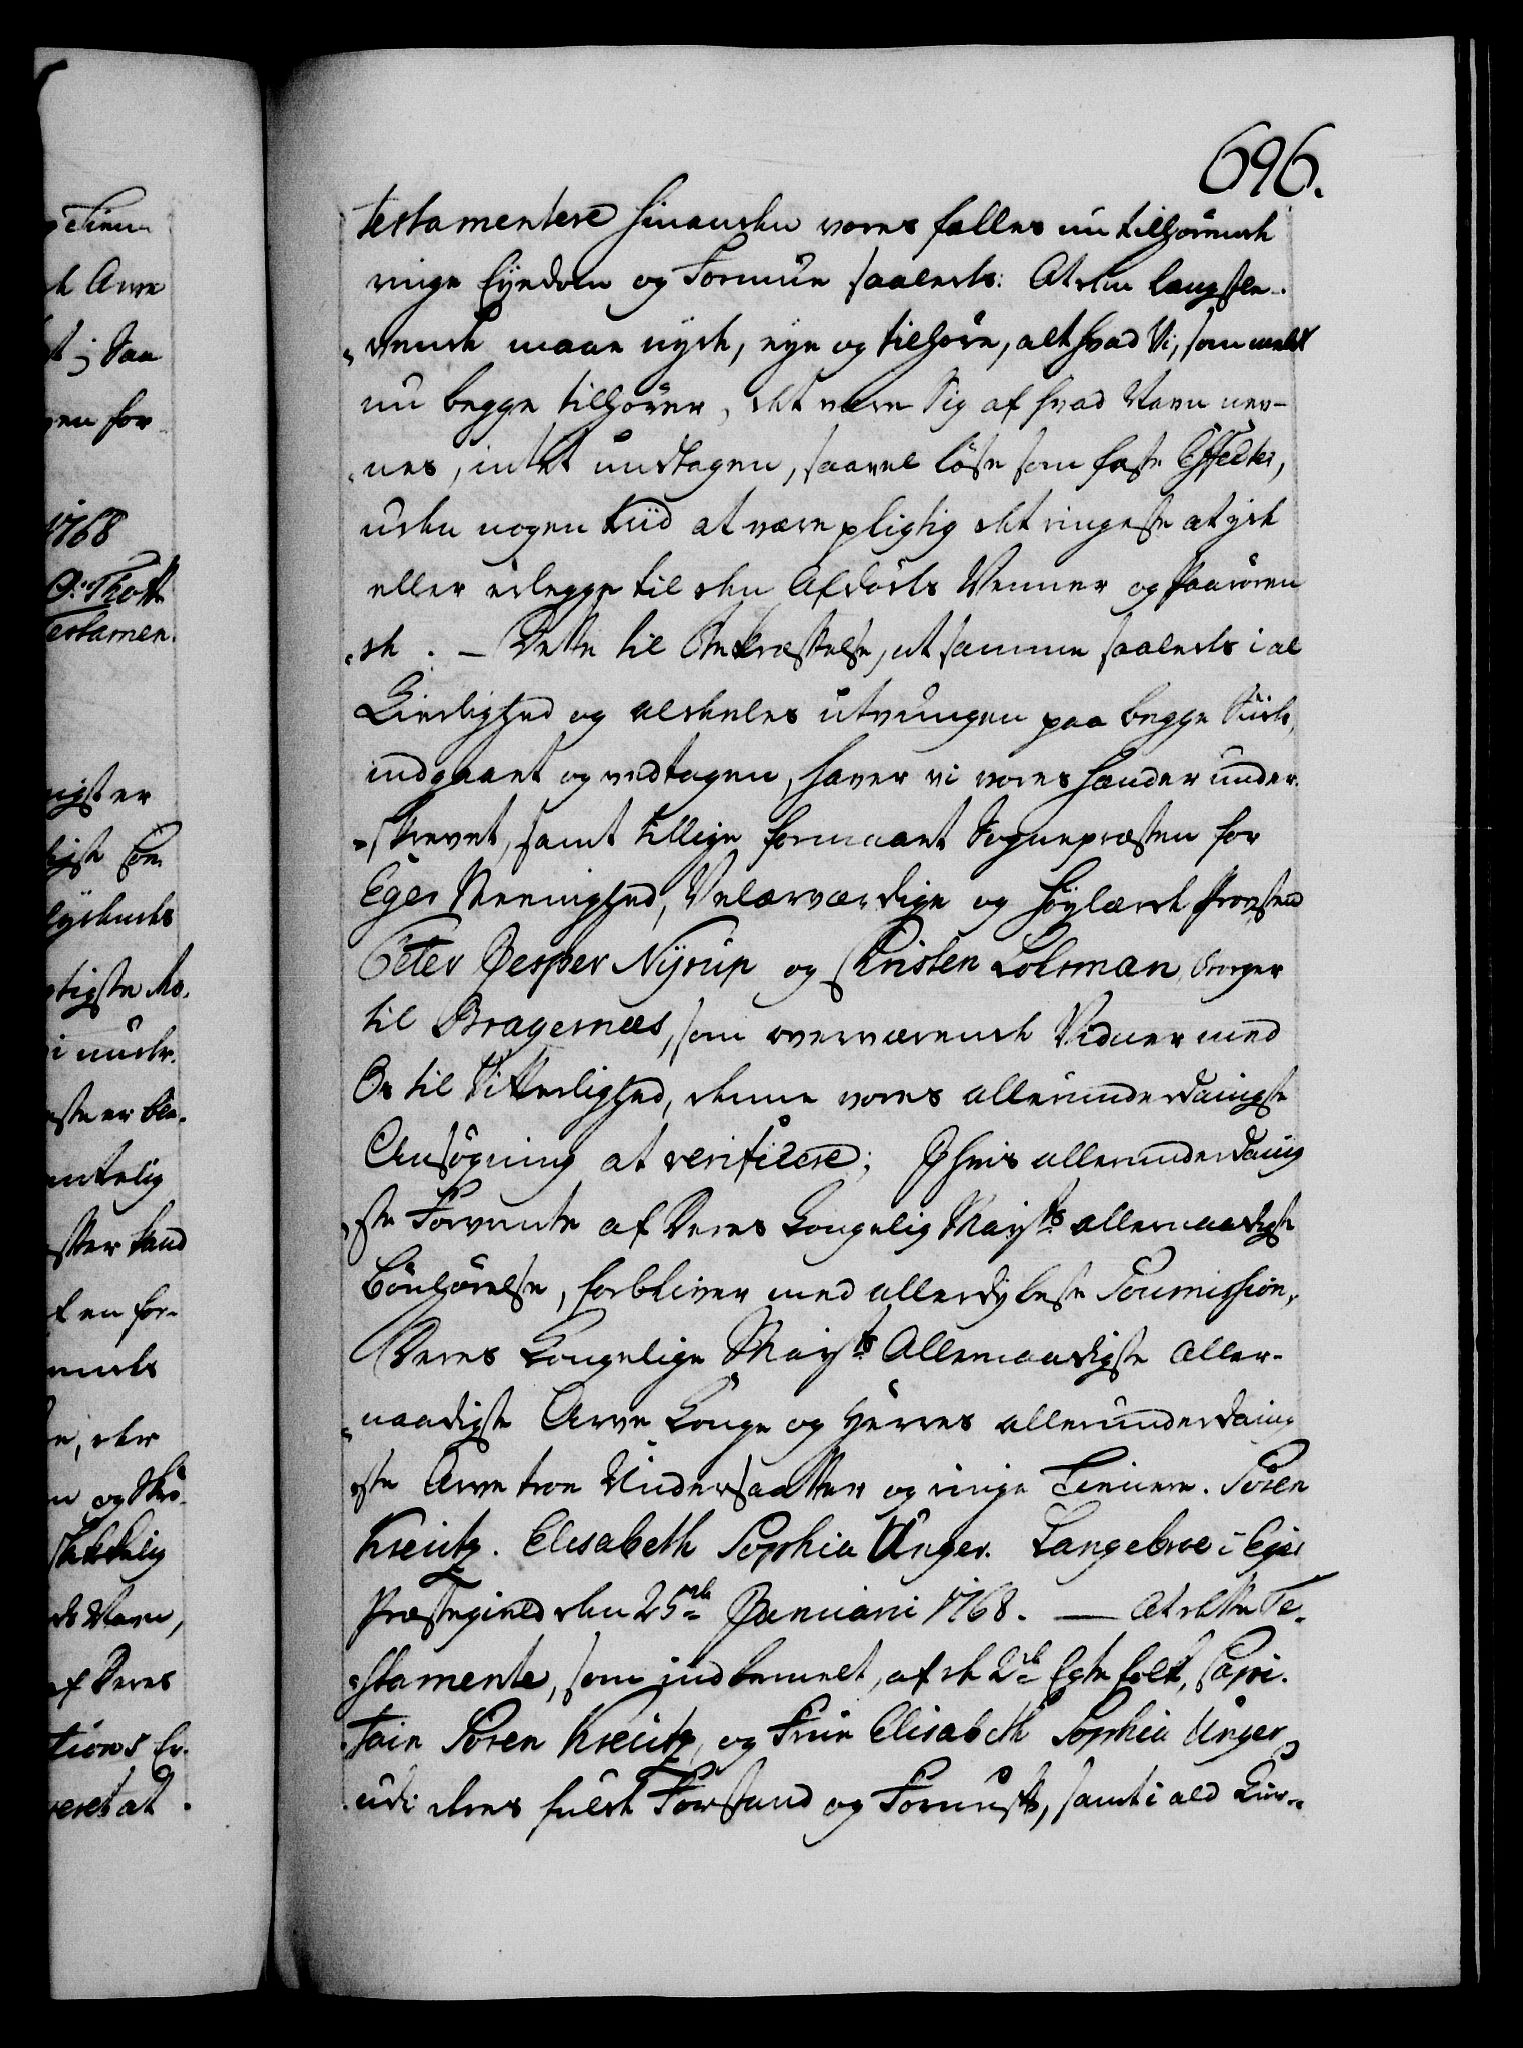 696.
testamentere hinanden vores fælles nu tilhørende
ringe Eyendom og Formue saaledes: At den længstle-
vende maae nyde, eye og tilhøre, alt hvad Vi, som meldt
nu begge tilhører, det være Sig af hvad Navn nev-
nes, intet undtagen, saavel løse som faste Effecter,
uden nogen tiid at være pligtig det ringeste at yde
eller erlegge til den Afdødes Venner og Paarøren
de. - Dette til Bekræftelse, at samme saaledes i al
Kierlighed og aldeeles utvungen paa begge Siide,
indgaaet og vedtagen, haver vi vores Hænder under-
skrevet, samt tillige formaaet Sognepræsten for
Eger Meenighed, Velærværdige og Høylærde Provst
Peter Jesper Nyrup og Kristen Lolrman, Borger
til Bragernæs, som overværende Vidner med
Os til Vitterlighed, denne vores allerunderdanigste
Ansøgning at verificere; J hvis allerunderdanig
ste Forvente af Deres Kongelig Mayts allernaadigste
Bønhørelse, forbliver med allerdybeste Soumission,
Deres Kongelige Mayts Allernaadigste Aller-
naadigste Arve Konge og Herres allerunderdanig
ste Arve troe Undersaatter og ringe Tienere. Søren
Kreutz. Elisabeth Sophia Unger. Langebroe i Eger
Præstegield den 25de Januarii 1768. — At dette Te-
stamente, som indbemelt, af de 2de Egte folk, Capi-
tain Søren Kreutz, og Frue Elisabeth Sophia Unger,
udi deres fulde Forstand og Fornuft, samt i ald Kier-